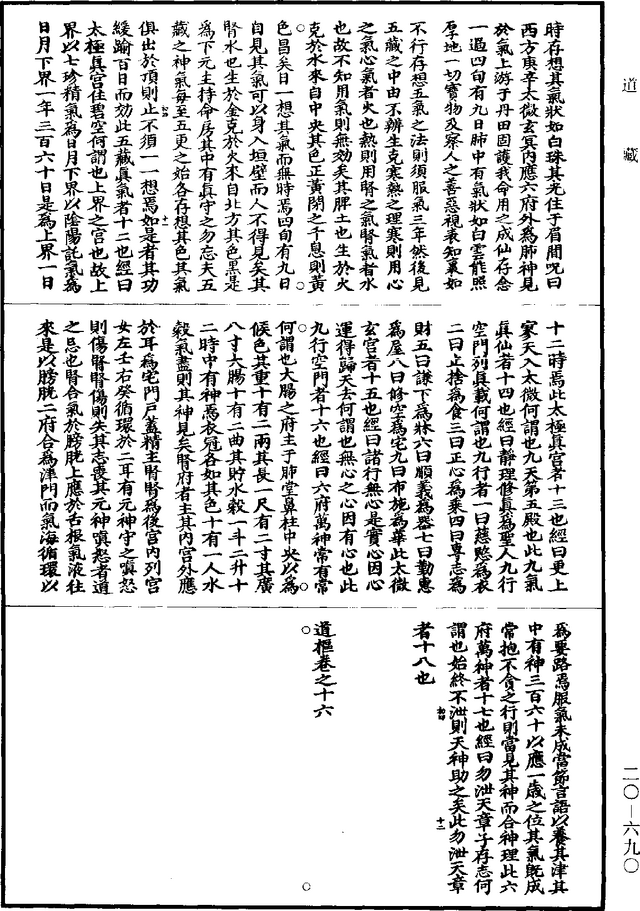 道藏
時存想其氣狀如白珠其光住于眉間呪曰
西方庚辛太微玄冥內應六府外為肺神見
於氣上游于丹田固護我命用之成仙存念
一過四旬有九日肺中有氣狀如白雲能照
厚地一切寶物及察人之善惡視表知裏如
不行存想五氣之法則須服氣三年然後見
五藏之中由不辨生克寒熱之理寒則用心
之氣心氣者火也熱則用腎之氣腎氣者水
也故不知用氣則無効矣其脾土也生於火
克於水來自中央其色正黃閉之千息則黃
色昌矣日一想其氣而無時焉四旬有九日
自見其氣可以身入垣壁而人不得見矣其
腎水也生於金克於火來自北方其色黑是
為下元主持命房其中有真守之勿忘夫五
藏之神氣每至五更之始各存想其色其氣
俱出於頂則止不須一一想焉如是者其功
緩踰百日而効此五藏真氣者十二也經曰
太極真宮住碧空何謂也上界之宮也故上
界以七珍精氣為日月下界以陰陽託氣為
日月下界一年三百六十日是為上界一日
十二時焉此太極真宮者十三也經曰更上
寥天入太微何謂也九天第五殿也此九氣
真仙者十四也經曰靜理修真為聖人九行
空門列真載何謂也九行者一曰慈愍為衣
二曰止捨為食三曰正心為乘四曰專志為
財五曰謙下為牀六曰順義為器七曰勤惠
為屋八曰修空為宅九曰布施為華此太微
玄宮者十五也經曰諸行無心是實心因心
運得歸天去何謂也無心之心因有心也此
九行空門者十六也經曰六府萬神常有常
何謂也大腸之府主于肺堂鼻柱中央以為
候色其重十有二兩其長一尺有二寸其廣
八寸大腸十有二曲其貯水穀一斗二升十
二時中有神焉衣冠各如其色十有一人水
穀氣盡則其神見矣腎府者主其內宮外應
於耳為宅門戶蓋精主腎腎為後宮內列宮
女左壬右癸循環於二耳有元神守之嗔怒
則傷腎腎傷則失其志喪其元神嗔怒者道
之忌也腎合氣於膀胱上應於舌根氣液往
來是以膀胱二府合為津門而氣海循環以
為要路焉服氣未成當節言語以養其津其
中有神三百六十以應一歲之位其氣既成
常抱不貪之行則當見其神而合神理此六
府萬神者十七也經曰勿泄天章子存志何
謂也始終不泄則天神助之矣此勿泄天章
者十八也
道樞卷之十六
二〇—六九〇